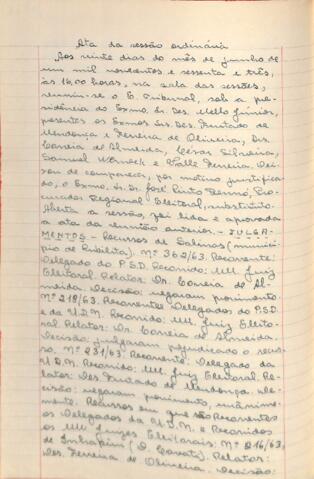 Ata da sessão ordinária
Aos vinte dias do mês de junho de
um mil novecentos e sessenta e três,
às 16,00 horas, na sala das sessões,
reuniu-se o E. Tribunal, sob a pre-
sidência do Exmo. Sr. Des. Mello Júnior,
presentes os Exmos. Srs. Des. Furtado de
Mendonça e Ferreira de Oliveira, Drs.
Correia de Almeida, César Silveira,
Samuel Werneck e Valle Ferreira. Dei-
xou de comparecer, por motivo justifica-
do, o Exmo. Sr. Dr. José Pinto Renno, Pro-
curador Regional Eleitoral, substituto.
Aberta a sessão, foi lida e aprovada
a ata da reunião anterior. - JULGA-
MENTOS - Recursos de Salinas (municí-
pio de Rubelita). Nº 362/63. Recorrente:
Delegado do P.S.D. Recorrido: MM. Juiz
Eleitoral. Relator: Dr. Correia de Al-
meida. Decisão: negaram provimento.
Nº 218/63. Recorrentes: Delegados do P.S.D.
e da U.D.N. Recorrido: MM. Juiz Eleito-
ral. Relator: Dr. Correia de Almeida.
Decisão: julgaram prejudicado o recur-
so. Nº 231/63. Recorrente: Delegado da
U.D.N. Recorrido: MM. Juiz Eleitoral. Re-
lator: Des. Furtado de Mendonça. De-
cisão: negaram provimento, unânime-
mente. Recursos em que são Recorrentes
os Delegados da U.D.N. e Recorridos
os MM. Juízes Eleitorais: Nº 216/63,
de Inhapim (D. Cavati). Relator:
Des. Ferreira de Oliveira. Decisão: